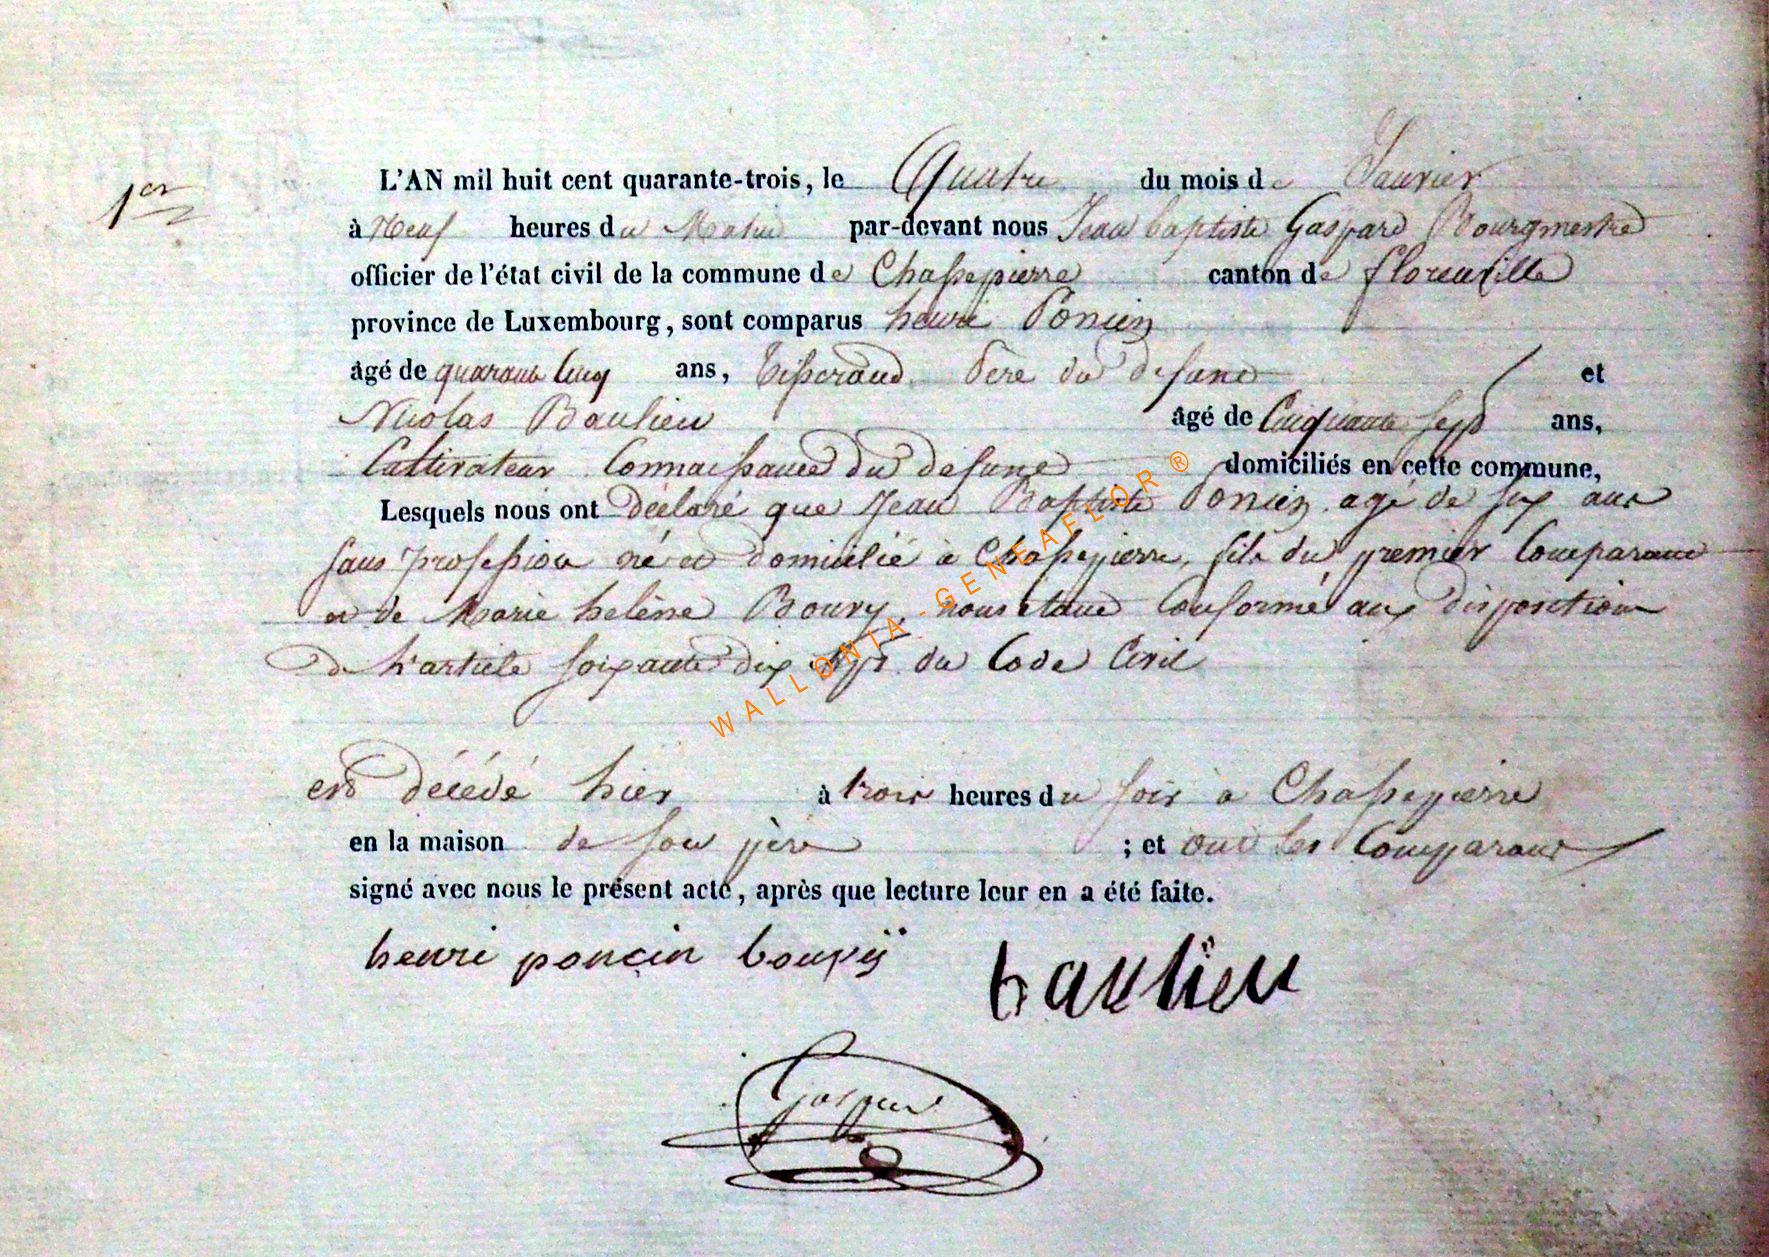 1er
L'AN mil huit cent quarante-trois, le Quatre du mois de Janvier
à Neuf heures du Matin par-devant nous Jean baptiste Gaspard Bourgmestre
officier de l'état civil de la commune de Chassepierre canton de florenville
province de Luxembourg, sont comparus henri Poncin
âgé de quarante Cinq ans, Tisserand, Père du defunt et
Nicolas Baulieu âgé de Cinquante sept ans,
Cultivateur Connaissance du defunt domiciliés en cette commune,
Lesquels nous ont déclaré que Jean Baptiste Poncin agé de six ans
sans profession né et domicilié à Chassepierre, fils du premier Comparant
et de Marie helène Boury, nous étant Conformé aux disposition
de l'article soixante dix sept du Code Civil
est décédé hier à trois heures du soir à Chassepierre
en la maison de son père ; et ont les Comparans
signé avec nous le présent acte, après que lecture leur en a été faite.
henri ponçin bouvÿ baulieu
Gaspard
WALLONIA-GENEAFLOR ®